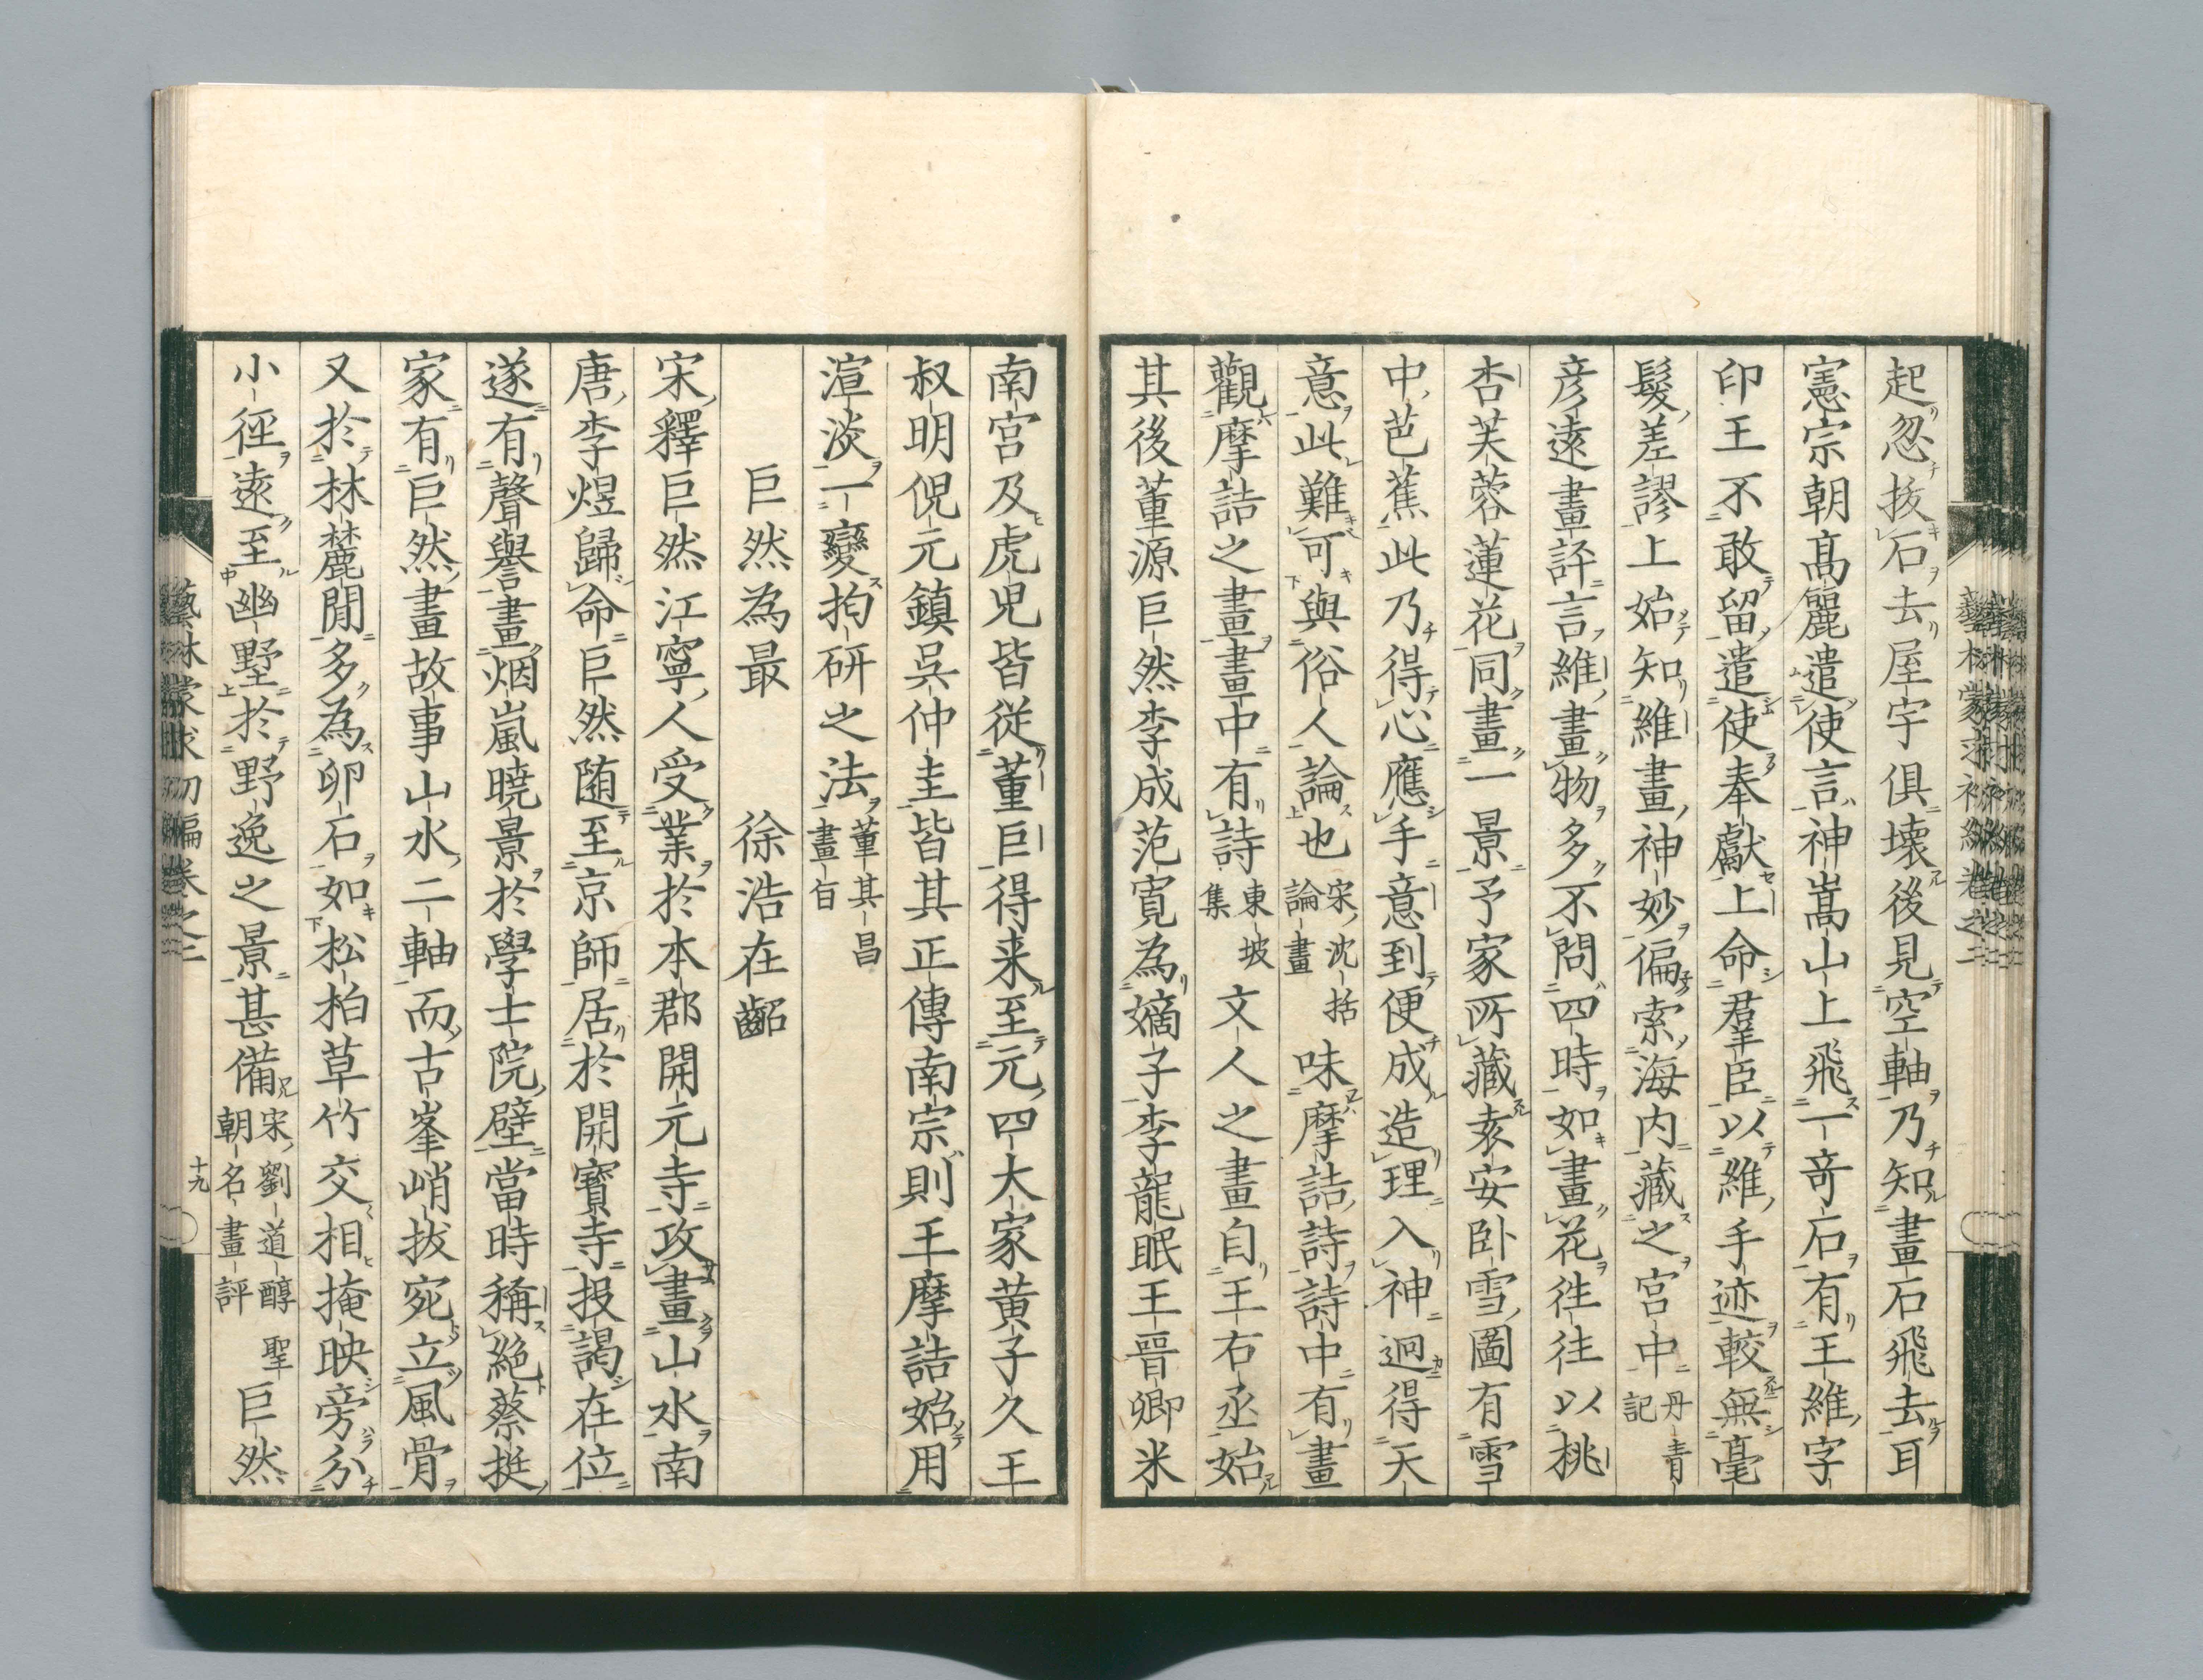 起忽抜石去屋宇俱壊後見空軸乃知畫石飛去耳
憲宗朝髙麗遣使言神嵩山上飛一竒石有王維字
印王不敢留遣使奉獻上命羣臣以維手迹較無毫
髮差謬上始知維畫神妙偏索海内藏之宮中丹青記
彦遠畫評言維畫物多不問四時如畫花徃往以桃
杏芙蓉蓮花同畫一景予家所藏袁安卧雪圖有雪
中芭蕉此乃得心應手意到便成造理入神迥得天
意此難可與俗人論也宋沈括論畫味摩詰詩詩中有畫
觀摩詰之畫畫中有詩東坡集文人之畫自王右丞始
其後董源巨然李成范寛為嫡子李龍眠王晋卿米
南宮及虎児皆従董巨得来至元四大家黄子久王
叔明倪元鎮吳仲圭皆其正傳南宗則王摩詰始用
渲淡一變拘研之法董其昌畫旨
巨然為最　徐浩在齠
宋釋巨然江寧人受業於本郡開元寺攻畫山水南
唐李煜歸命巨然随至京師居於開寶寺投謁在位
遂有聲譽畫烟嵐曉景於學士院壁當時稱絶蔡挺
家有巨然畫故事山水二軸而古峯峭抜宛立風骨
又於林麓間多為卵石如松柏草竹交相掩映旁分
小徑遠至幽墅於野逸之景甚備宋劉道醇聖朝名畫評巨然
藝林蒙求初編卷之二
十九